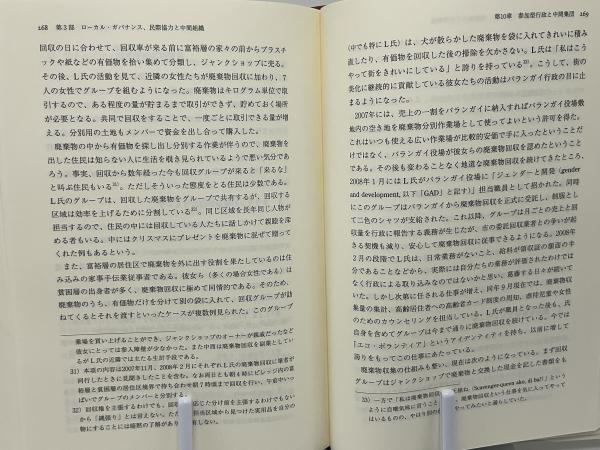 168 第3部 ローカル・ガバナンス、民際協力と中間組織
回収の日に合わせて、回収車が来る前に富裕層の家々の前からプラスチ
ックや紙などの有価物を拾い集めて分類し、ジャンクショップに売る。
その後、L氏の活動を見て、近隣の女性たちが廃棄物回収に加わり、7
人の女性でグループを組むようになった。廃棄物はキログラム単位で取
引するので、ある程度の量が貯まるまで取引ができず、貯めておく場所
が必要となる。共同で回収をすることで、一度ごとに取引できる量が増
える。分別用の土地もメンバーで資金を出し合って購入した。
廃棄物の中から有価物を探し出し分別する作業が伴うので、廃棄物を
出した住民は知らない人に生活を覗き見られているようで悪い気分であ
ろう。事実、回収から数年経った今も回収グループが来ると「来るな」
と叫ぶ住民もいる31)。ただしそういった態度をとる住民は少数である。
L氏のグループは、回収した廃棄物をグループで共有するが、回収する
区域は効率を上げるために分割している32)。同じ区域を長年同じ人物が
担当するので、住民の中には回収している人たちに話しかけて親睦を深
める者もいる。中にはクリスマスにプレゼントを廃棄物に混ぜて贈って
くれた例もあるという。
また、富裕層の居住区で廃棄物を外に出す役割を果たしているのは住
み込みの家事手伝従事者である。彼女ら（多くの場合女性である）は
貧困層の出身者が多く、廃棄物回収に極めて同情的である。そのため、
廃棄物のうち、有価物だけを分けて別の袋に入れて、回収グループが訪
ねてくるとそれを渡すといったケースが複数例見られた。このグループ
業場を買い上げることができ、ジャンクショップのオーナーが親戚だったなど
彼女にとっては参入障壁が少なかった。また中西は廃棄物回収を副業としてい
るがL氏の近隣では主たる生計手段である。
31) 本項の内容は2007年11月、2008年2月にそれぞれL氏の廃棄物回収に筆者が
同行したときに見聞きしたことを含む。なお両日とも朝4時にビレッジ内の富
裕層と貧困層の居住区境界で待ち合わせ朝7時頃まで回収を行い、午前中いっ
ぱいでグループのメンバーと分別する。
32) 回収権を主張するわけでも、
から「縄張り」とは言えない。
物にすることには暗黙の了解があり
第10章 参加型行政と中間集団 169
（中でも特にL氏）は、犬が散らかした廃棄物を袋に入れてきれいに積み
直したり、有価物を回収した後の掃除を欠かさない。L氏は「私はこう
やって街をきれいにしている」と誇りを持っている33)。こうして、街の
美化に継続的に貢献している彼女たちの活動はバランガイ行政の目に止
まるようになった。
2007年には、売上の一割をバランガイに納入すればバランガイ役場敷
地内の空き地を廃棄物分別作業場として使ってよいという許可を得た。
これはいつも使える広い作業場が比較的安価で手に入ったということだ
けではなく、バランガイ役場が彼女らの廃棄物回収を認めたということ
である。その後も変わることなく地道な廃棄物回収を続けてきたところ、
2008年1月にはL氏がバランガイ役場に「ジェンダーと開発 (gender
and development, 以下「GAD」と記す)」担当職員として招かれた。同時
にこのグループはバランガイから廃棄物回収を正式に受託し、制服とし
て二色のシャツが支給された。これ以降、グループは月ごとの売上と回
収量を行政に報告する義務が生じたが、市の委託回収業者との争いが起
きる契機も減り、安心して廃棄物回収に従事できるようになる。2008年
2月の段階でL氏は、日常業務がないこと、給料が領収証の額面の半
分であることなどから、実際には自分たちの業務が評価されたわけでは
なく行政による取り込みなのではないかと思い、葛藤する日々が続いて
いた。しかし次第に任される仕事が増え、同年9月現在では、廃棄物回
収量の集計、高齢居住者への高齢者カード制度の周知、虐待児童や女性
のためのカウンセリングを担当している。L氏が職員となった後も、氏
自身を含めてグループは今まで通りに廃棄物回収を続けている。今では
「エコ・ボランティア」というアイデンティティを持ち、以前に増して
誇りをもってこの仕事にあたっている。
廃棄物収集の仕組みも整い、現在は次のようになっている。まず回収
グループはジャンクショップで廃棄物と交換した現金を記した書類をも
33) 一方で「私は廃棄物回収
(Scavenger-queen ako, di ba!!) という
ように自嘲気味に言うこと
廃棄物回収という仕事を気に入ってやって
はいるものの、やはり別の
やってみたいと漏らしていた。